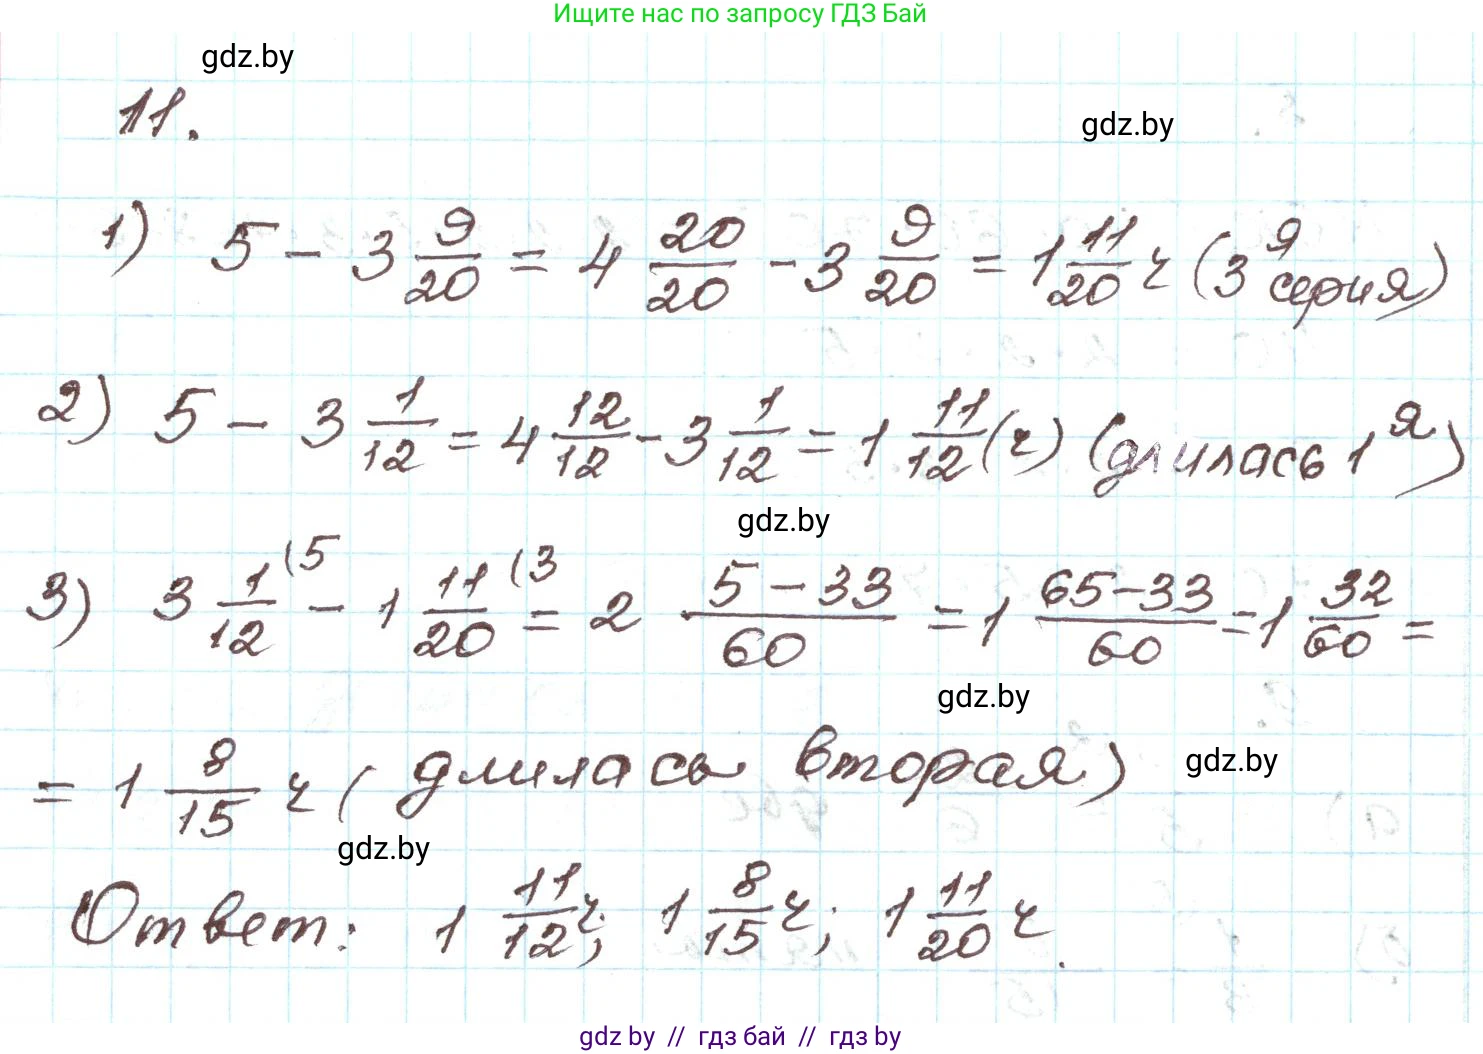 Ищите нас по запросу ГДЗ Бай
gdz.by
11.
gdz.by
1) 5 - 3 9/20 = 4 20/20 - 3 9/20 = 1 11/20 ч (3я серия)
2) 5 - 3 1/12 = 4 12/12 - 3 1/12 = 1 11/12 (ч) (длилась 1я)
gdz.by
3) 3 1/12 (5 - 1 11/20 (3 = 2 (5-33)/60 = 1 (65-33)/60 = 1 32/60 =
gdz.by
= 1 8/15 ч (длилась вторая)
gdz.by
gdz.by
Ответ: 1 11/12 ч; 1 8/15 ч; 1 11/20 ч.
gdz.by // гдз бай // гдз by